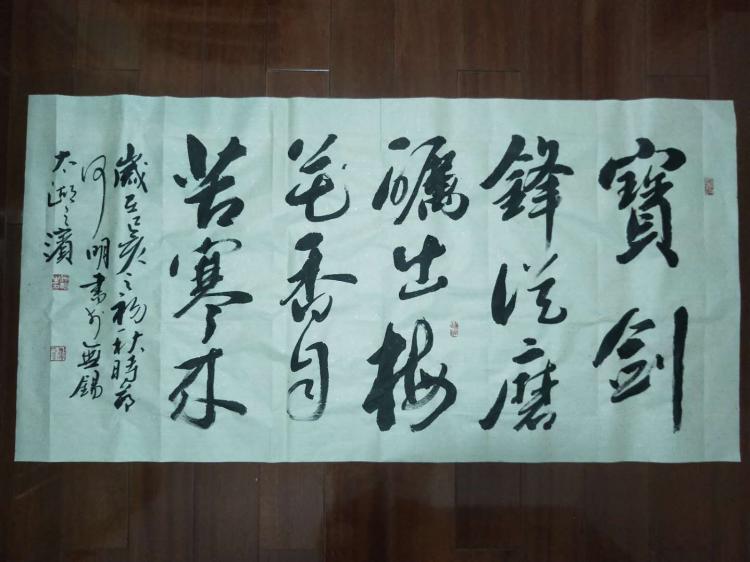 寶剑
鋒從磨
礪出梅
花香自
苦寒来
歲在己亥之初秋時節
何明書於無錫
太湖之濱